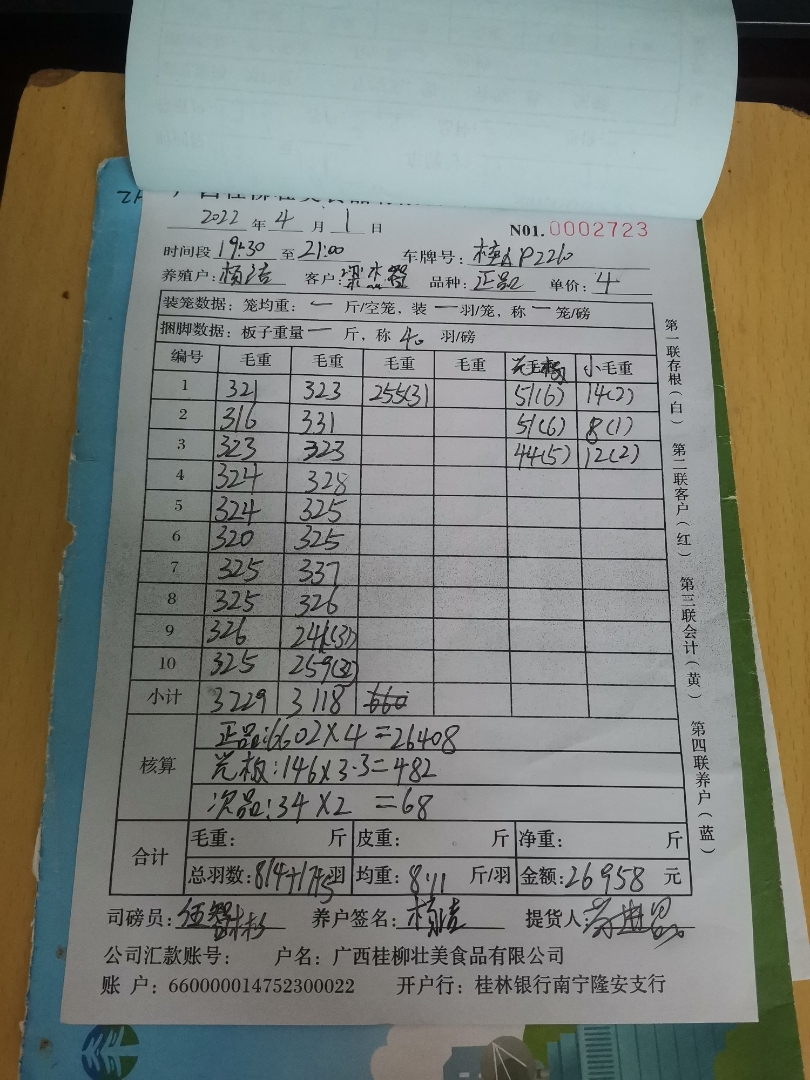 2022 年 4 月 1 日 N01. 0002723
时间段 19:30 至 21:00 车牌号: 桂AP2260
养殖户: 杨洁 客户: 品种: 正品 单价: 4
装笼数据: 笼均重: 一 斤/空笼, 装 一 羽/笼, 称 一 笼/磅
捆脚数据: 板子重量 一 斤, 称 40 羽/磅
编号 毛重 毛重 毛重 毛重 毛重 小毛重
1 321 323 255(31) 51(6) 14(2)
2 316 331 51(6) 8(1)
3 323 323 44(5) 12(2)
4 324 328
5 324 325
6 320 325
7 325 337
8 325 326
9 326
10 325 259(32)
小计 3229 3118 660
核算
正品:6602×4=26408
光板:146×3·3=482
次品:34×2 =68
合计
毛重: 斤 皮重: 斤 净重: 斤
总羽数: 羽 均重: 8.11 斤/羽 金额: 26958 元
司磅员: 养户签名: 杨洁 提货人:
公司汇款账号: 户名: 广西桂柳壮美食品有限公司
账 户: 660000014752300022 开户行: 桂林银行南宁隆安支行
第一联存根(白) 第二联客户(红) 第三联会计(黄) 第四联养户(蓝)